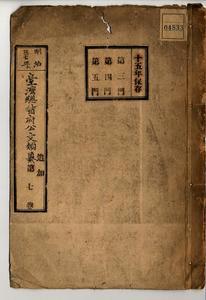 04833
十五年保存
第三門
第四門
第五門
明治
臺灣總督府公文類纂
追加
第七卷